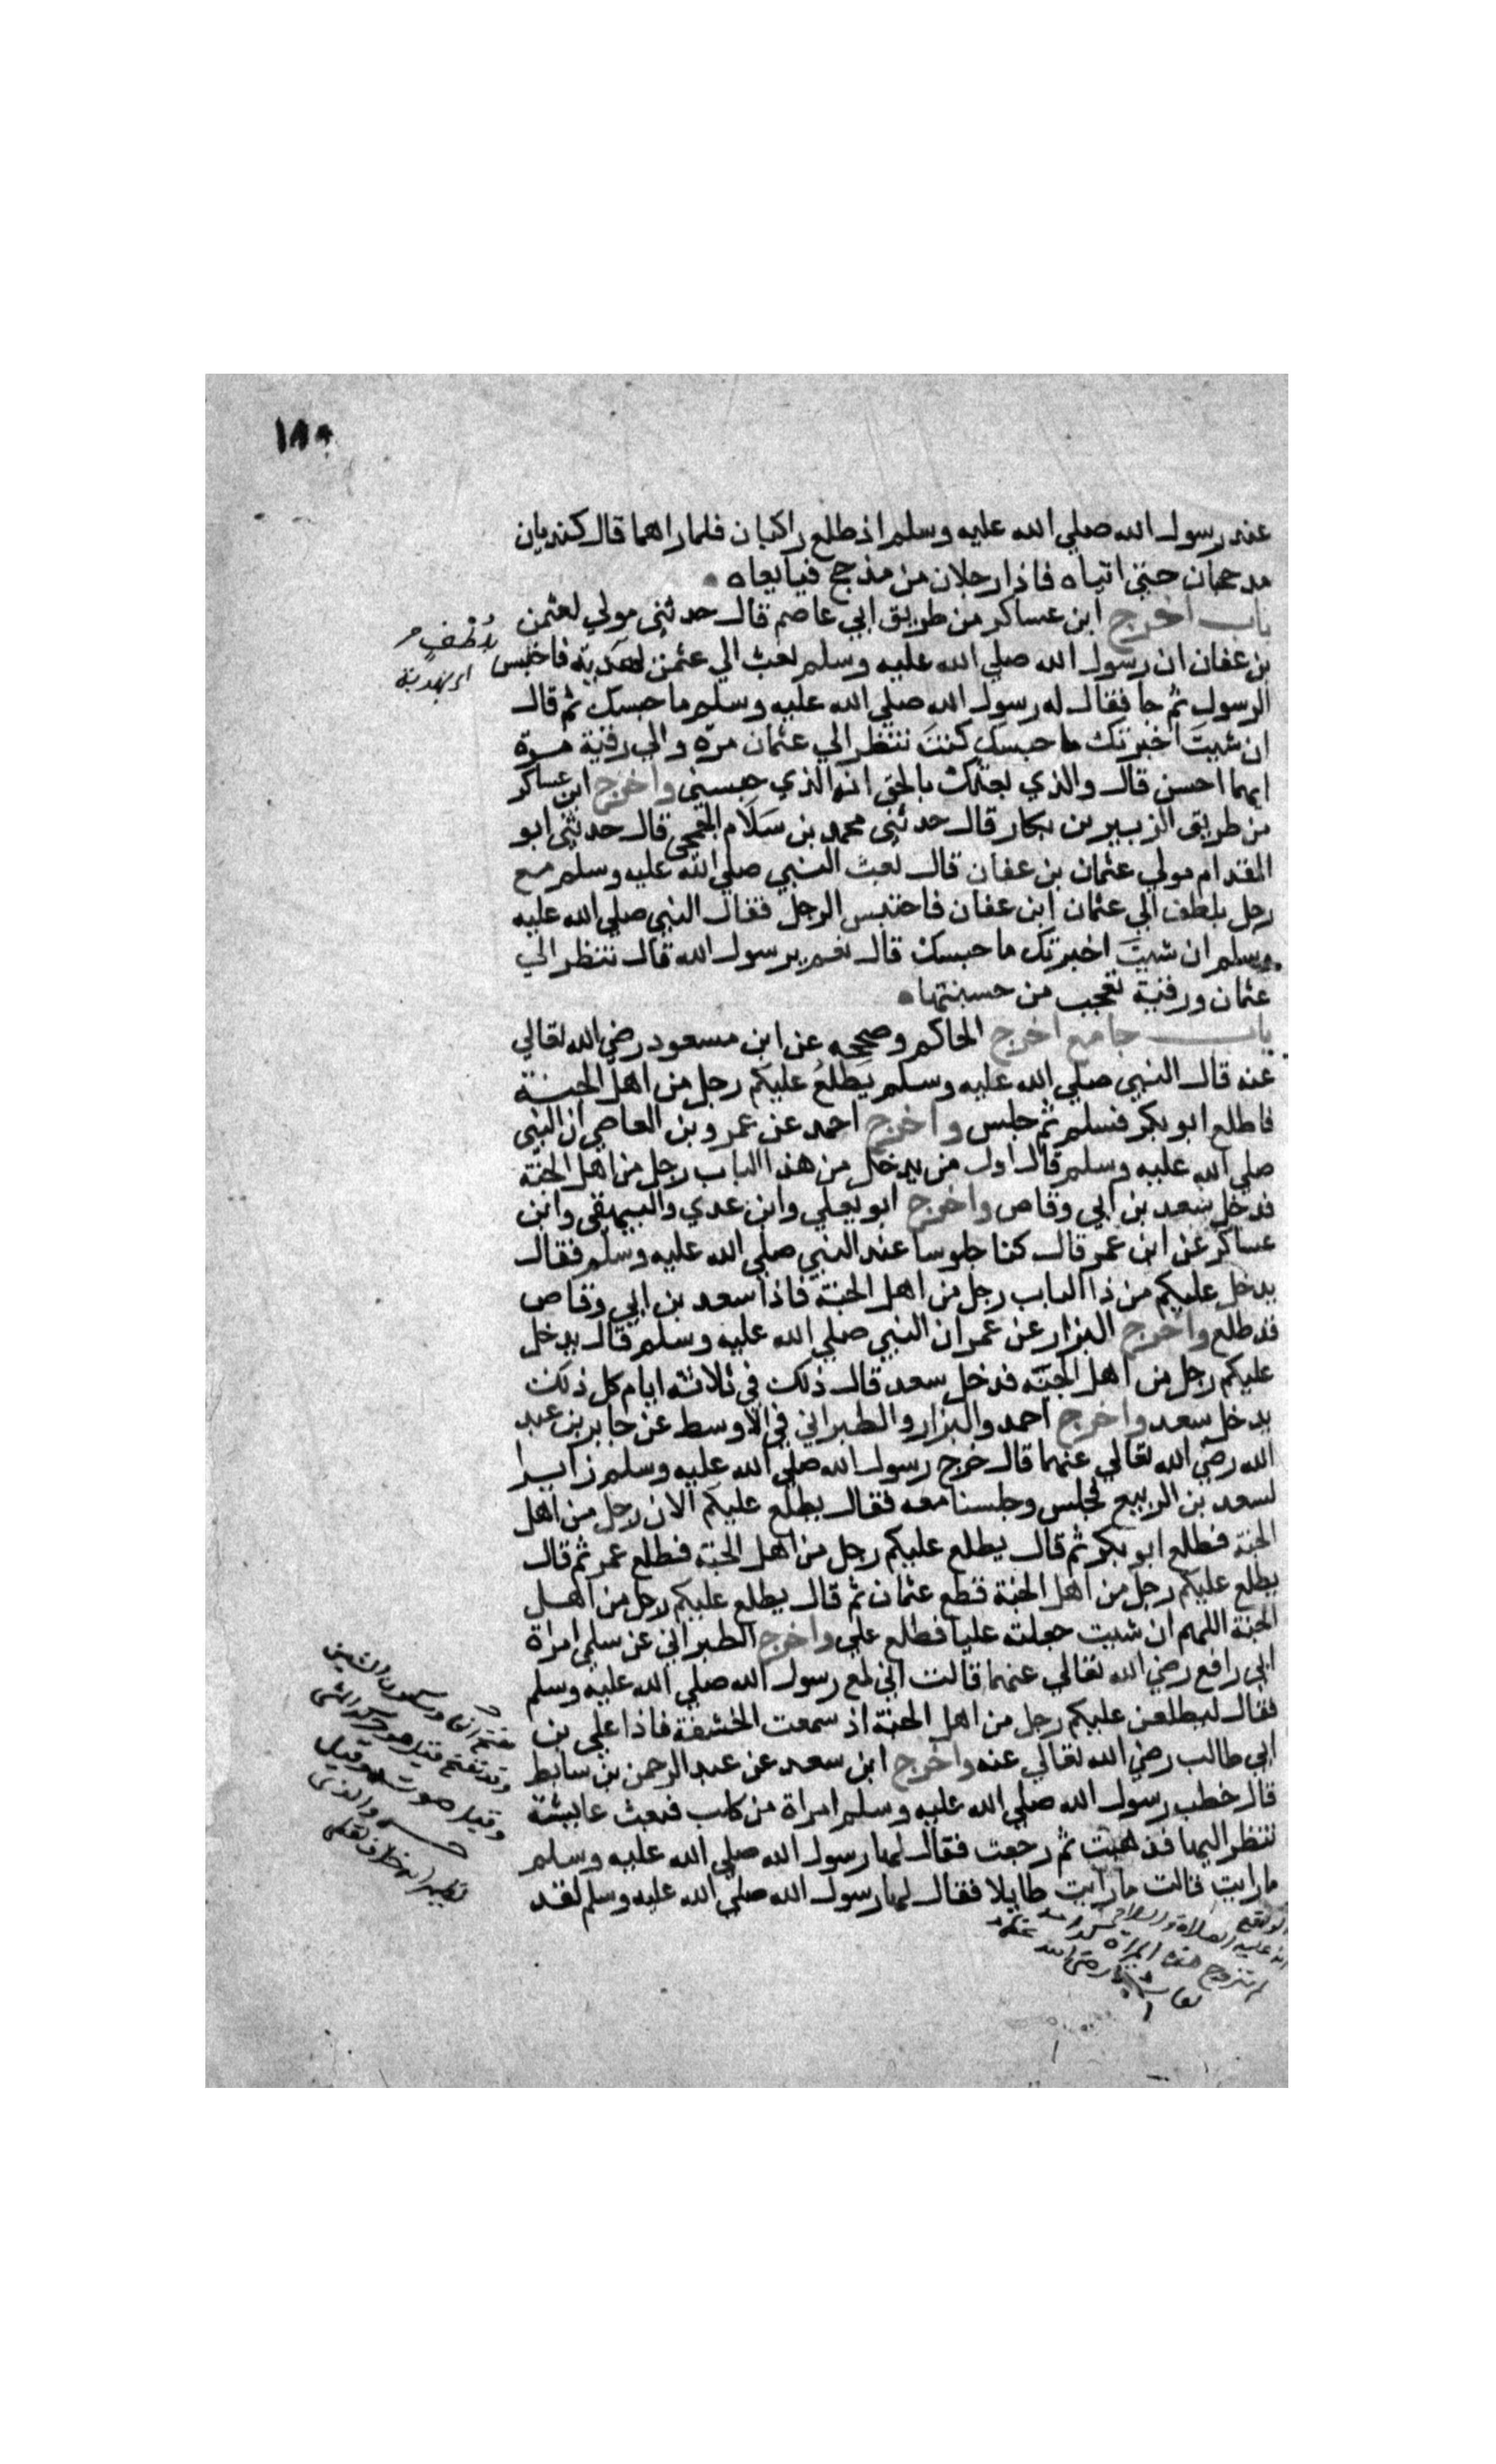 ١٨٥
عند رسول الله صلي الله عليه وسلم اذ طلع راكبان فلما راهما قال كنديان
مدحجان حتي اتياه فاذا رجلان من مذحج فبايعاه
باب اخرج ابن عساكر من طريق ابي عاصم قال حدثني مولي لعثمن
بن عفان ان رسول الله صلي الله عليه وسلم بعث الي عثمن بهدية فاحتبس
بلطف
اي بهدية
الرسول ثم جا فقال له رسول الله صلي الله عليه وسلم ما حبسك ثم قال
ان شيتَ اخبرتك ما حبسك كنتَ تنظر الي عثمان مرة والي رقية مرة
ايهما احسن قال والذي بعثك بالحق انه الذي حبسني واخرج ابن عساكر
من طريق الزبير بن بكار قال حدثني محمد بن سَلَام الجمحي قال حدثني ابو
المقدام مولي عثمان بن عفان قال بعث النبي صلي الله عليه وسلم مع
رجل بلطف الي عثمان ابن عفان فاحتبس الرجل فقال النبي صلي الله عليه
وسلم ان شيتَ اخبرتك ما حبسك قال نعم يرسول الله قال تنظر الي
عثمان ورقية تعجب من حسنهما
باب جامع اخرج الحاكم وصححه عن ابن مسعود رضي الله تعالي
عنه قال النبي صلي الله عليه وسلم يَطلعُ عليكم رجل من اهل الجنة
فاطلع ابو بكر فسلم ثم جلس واخرج احمد عن عمرو بن العاصي ان النبي
صلي الله عليه وسلم قال اول من يدخل من هذا الباب رجل من اهل الجنة
فدخل سعد بن ابي وقاص واخرج ابو يعلي وابن عدي والبيهقي وابن
عساكر عن ابن عمر قال كنا جلوسا عند النبي صلي الله عليه وسلم فقال
يدخل عليكم من ذا الباب رجل من اهل الجنة فاذا سعد بن ابي وقاص
قد طلع واخرج البزار عن عمر ان النبي صلي الله عليه وسلم قال يدخل
عليكم رجل من اهل الجنة فدخل سعد قال ذلك في ثلاثة ايام كل ذلك
يدخل سعد واخرج احمد والبزار والطبراني في الاوسط عن جابر بن عبد
الله رضي الله تعالي عنهما قال خرج رسول الله صلي الله عليه وسلم زايرا
لسعد بن الربيع فجلس وجلسنا معه فقال يطلع عليكم الان رجل من اهل
الجنة فطلع ابو بكر ثم قال يطلع عليكم رجل من اهل الجنة فطلع عمر ثم قال
يطلع عليكم رجل من اهل الجنة فطع عثمان ثم قال يطلع عليكم رجل من اهل
الجنة اللهم ان شيت جعلته عليا فطلع علي واخرج الطبراني عن سلمي امراة
ابي رافع رضي الله تعالي عنهما قالت اني لمع رسول الله صلي الله عليه وسلم
فقال ليطلعن عليكم رجل من اهل الجنة اذ سمعت الخشفة فاذا علي بن
ابي طالب رضي الله تعالي عنه واخرج ابن سعد عن عبد الرحمن بن سابط
قال خطب رسول الله صلي الله عليه وسلم امراة من كلب فبعث عايشة
تنظر اليها فذهبت ثم رجعت فقال لها رسول الله صلي الله عليه وسلم
ما رايت قالت ما رايت طايلا فقال لها رسول الله صلي الله عليه وسلم لقد
بفتح الخا وسكون الشين
وقد تفتح قيل هو
وقيل صوت وقيل
انه عليه الصلاة والسلام
لم يتزوج هذه المراة